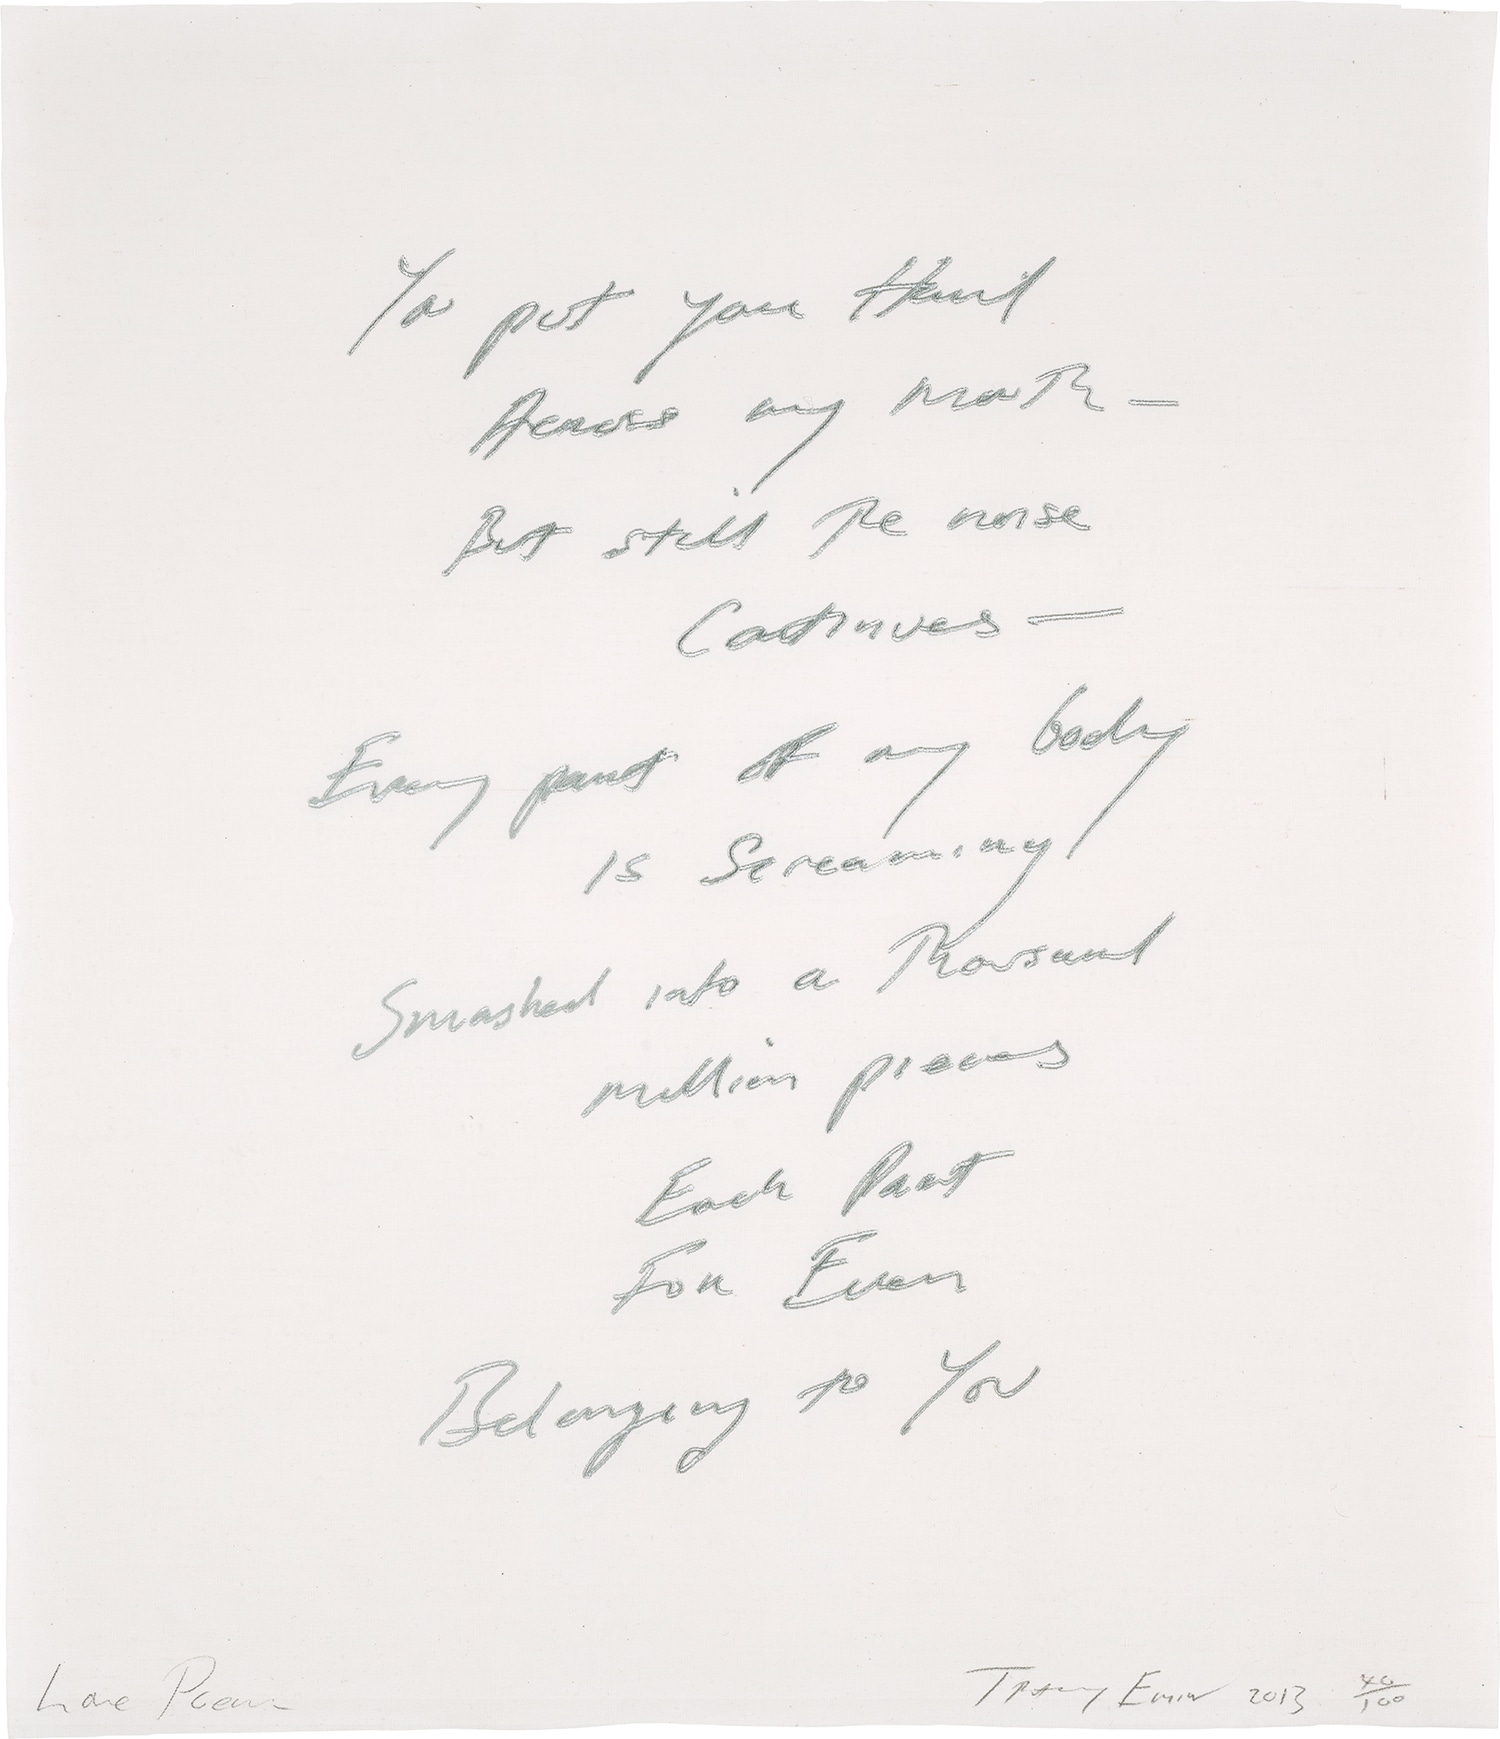 You put your Hand
Across my mouth —
But still The noise
Continues —
Every part of my body
is Screaming
Smashed into a Thousand
million pieces
Each Part
For Ever
Belonging to You
Love Poem
Tracey Emin 2013 46/100